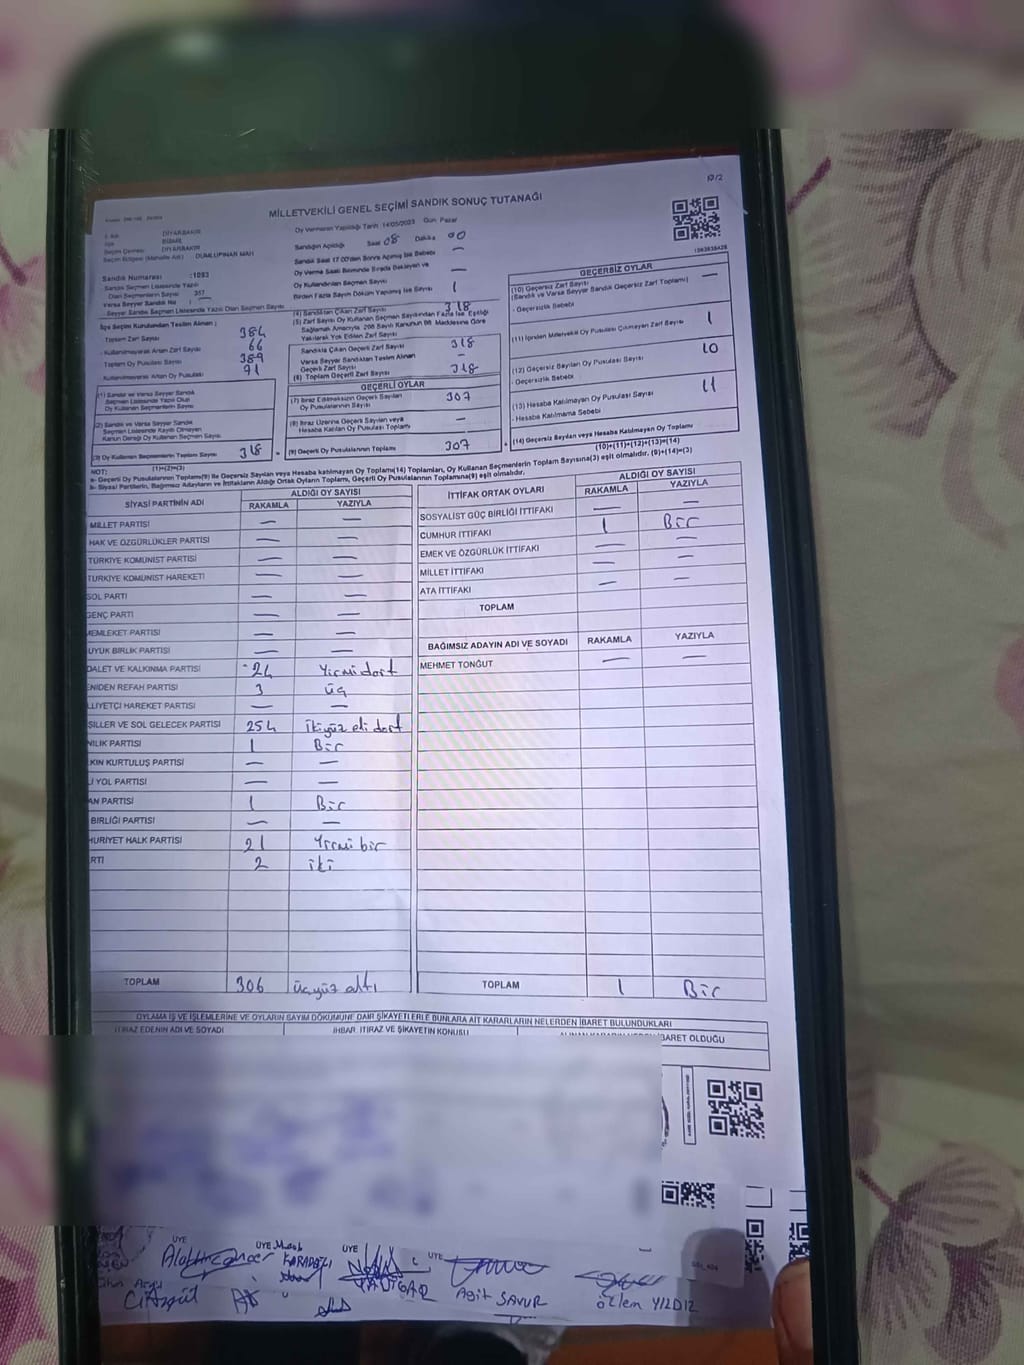 10/2
MİLLETVEKİLİ GENEL SEÇİMİ SANDIK SONUÇ TUTANAĞI
Oy Vermenin Yapıldığı Tarih: 14/05/2023 Gün: Pazar
DİYARBAKIR
BİSMİL
DİYARBAKIR
DUMLUPINAR MAH
Sandık Numarası :1093
Sandık Seçmen Listesinde Yazılı
Olan Seçmenlerin Sayısı 357
Seyyar Sandık Seçmen Listesinde Yazılı Olan Seçmen Sayısı
Sandığın Açıldığı Saat 08 Dakika 00
Sandık Saat 17.00'den Sonra Açılmış İse Sebebi —
Oy Verme Saati Bitiminde Sırada Bekleyen ve
Oy Kullandırılan Seçmen Sayısı —
Birden Fazla Sayım Döküm Yapılmış İse Sayısı 1
İlçe Seçim Kurulundan Teslim Alınan :
Toplam Zarf Sayısı 384
- Kullanılmayarak Artan Zarf Sayısı 66
Toplam Oy Pusulası Sayısı 389
- Kullanılmayarak Artan Oy Pusulası 91
(1) Sandık ve Varsa Seyyar Sandık
Seçmen Listesinde Yazılı Olup
Oy Kullanan Seçmenlerin Sayısı
(2) Sandık ve Varsa Seyyar Sandık
Seçmen Listesinde Kayıtlı Olmayan
Kanun Gereği Oy Kullanan Seçmen Sayısı
(3) Oy Kullanan Seçmenlerin Toplam Sayısı 318
(1)+(2)=(3)
(4) Sandıktan Çıkan Zarf Sayısı 318
(5) Zarf Sayısı Oy Kullanan Seçmen Sayısından Fazla İse Eşitliği
Sağlamak Amacıyla 298 Sayılı Kanunun 98. Maddesine Göre
Yakılarak Yok Edilen Zarf Sayısı
Sandıkta Çıkan Geçerli Zarf Sayısı 318
Varsa Seyyar Sandıktan Teslim Alınan
Geçerli Zarf Sayısı —
(6) Toplam Geçerli Zarf Sayısı 318
GEÇERLİ OYLAR
(7) İtiraz Edilmeksizin Geçerli Sayılan
Oy Pusulalarının Sayısı 307
(8) İtiraz Üzerine Geçerli Sayılan veya
Hesaba Katılan Oy Pusulası Toplamı —
(9) Geçerli Oy Pusulalarının Toplamı 307
GEÇERSİZ OYLAR
(10) Geçersiz Zarf Sayısı —
(Sandık ve Varsa Seyyar Sandık Geçersiz Zarf Toplamı)
- Geçersizlik Sebebi
(11) İçinden Milletvekili Oy Pusulası Çıkmayan Zarf Sayısı 1
(12) Geçersiz Sayılan Oy Pusulası Sayısı 10
- Geçersizlik Sebebi
(13) Hesaba Katılmayan Oy Pusulası Sayısı 11
- Hesaba Katılmama Sebebi
(14) Geçersiz Sayılan veya Hesaba Katılmayan Oy Toplamı
(10)+(11)+(12)+(13)=(14)
NOT:
a- Geçerli Oy Pusulalarının Toplamı(9) ile Geçersiz Sayılan veya Hesaba katılmayan Oy Toplamı(14) Toplamları, Oy Kullanan Seçmenlerin Toplam Sayısına(3) eşit olmalıdır. (9)+(14)=(3)
b- Siyasi Partilerin, Bağımsız Adayların ve İttifakların Aldığı Ortak Oyların Toplamı, Geçerli Oy Pusulalarının Toplamına(9) eşit olmalıdır.
SİYASİ PARTİNİN ADI ALDIĞI OY SAYISI
RAKAMLA YAZIYLA
MİLLET PARTİSİ — —
HAK VE ÖZGÜRLÜKLER PARTİSİ — —
TÜRKİYE KOMÜNİST PARTİSİ — —
TÜRKİYE KOMÜNİST HAREKETİ — —
SOL PARTİ — —
GENÇ PARTİ — —
MEMLEKET PARTİSİ — —
UYUK BİRLİK PARTİSİ — —
DALET VE KALKINMA PARTİSİ 24 Yirmi dört
ENİDEN REFAH PARTİSİ 3 üç
LLİYETÇİ HAREKET PARTİSİ — —
ŞİLLER VE SOL GELECEK PARTİSİ 254 ikiyüz eli dört
NİLİK PARTİSİ 1 Bir
KIN KURTULUŞ PARTİSİ — —
Lİ YOL PARTİSİ — —
AN PARTİSİ 1 Bir
BİRLİĞİ PARTİSİ — —
HURİYET HALK PARTİSİ 21 Yirmi bir
RTİ 2 iki
TOPLAM 306 üçyüz altı
İTTİFAK ORTAK OYLARI ALDIĞI OY SAYISI
RAKAMLA YAZIYLA
SOSYALİST GÜÇ BİRLİĞİ İTTİFAKI — —
CUMHUR İTTİFAKI 1 Bir
EMEK VE ÖZGÜRLÜK İTTİFAKI — —
MİLLET İTTİFAKI — —
ATA İTTİFAKI — —
TOPLAM
BAĞIMSIZ ADAYIN ADI VE SOYADI RAKAMLA YAZIYLA
MEHMET TONĞUT — —
TOPLAM 1 Bir
OYLAMA İŞ VE İŞLEMLERİNE VE OYLARIN SAYIM DÖKÜMÜNE DAİR ŞİKAYETLERLE BUNLARA AİT KARARLARIN NELERDEN İBARET BULUNDUKLARI
İTİRAZ EDENİN ADI VE SOYADI İHBAR, İTİRAZ VE ŞİKAYETİN KONUSU
BARET OLDUĞU
ÜYE ÜYE ÜYE ÜYE
KARADAĞLI
YADİGAR
Agit SAVUR
özlem YILDIZ